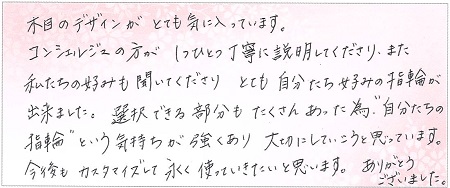 木目のデザインが とても気に入っています。
コンシェルジュの方が 1つひとつ丁寧に説明してくださり、また
私たちの好みも聞いてくださり とても自分たち好みの指輪が
出来ました。 選択できる部分も たくさんあった為、"自分たちの
指輪"という気持ちが強くあり 大切にしていこうと思っています。
今後も カスタマイズして 永く使っていきたいと思います。 ありがとう
ございました。